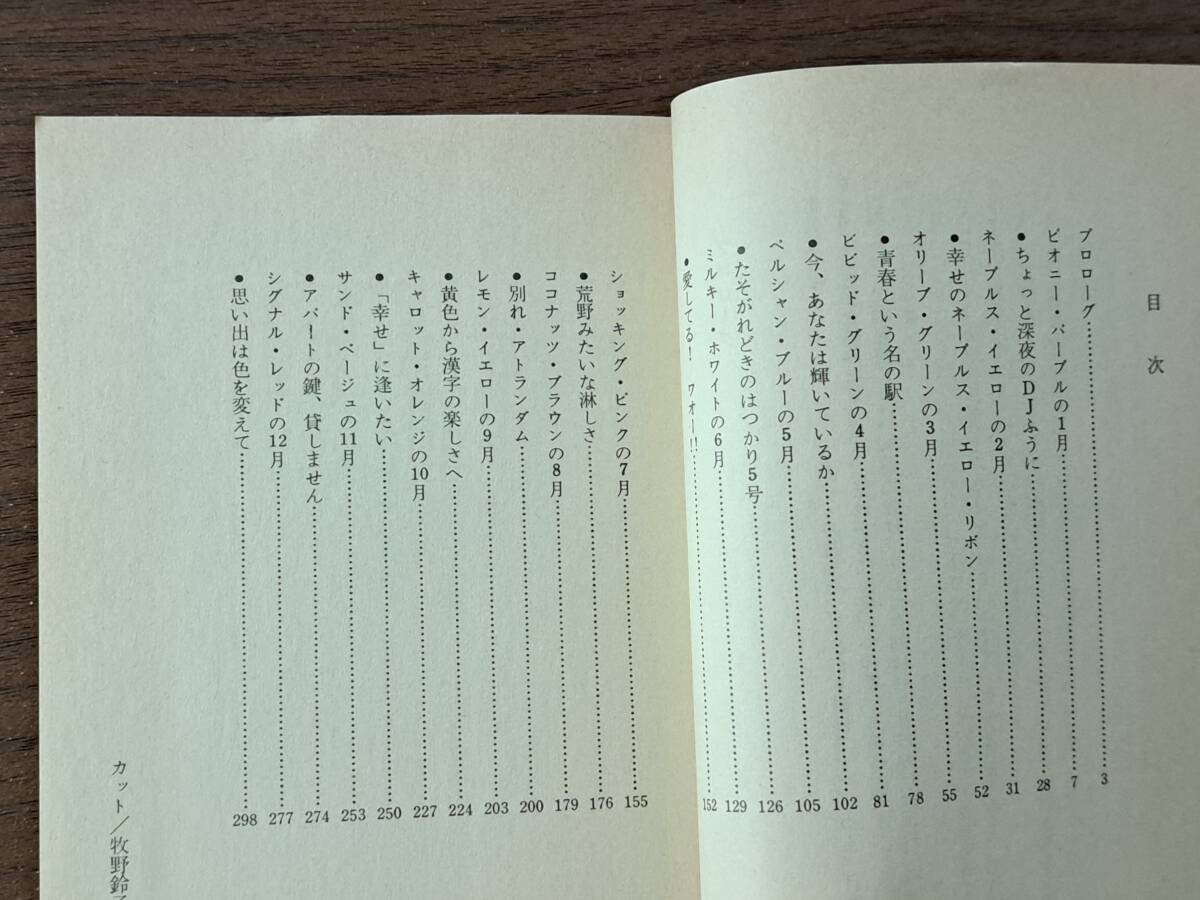 目次
プロローグ……3
ピオニー・パープルの1月……7
●ちょっと深夜のDJふうに……28
ネープルス・イエローの2月……31
●幸せのネープルス・イエロー・リボン……52
オリーブ・グリーンの3月……55
●青春という名の駅……78
ビビッド・グリーンの4月……81
●今、あなたは輝いているか……102
ペルシャン・ブルーの5月……105
●たそがれどきのはつかり5号……126
ミルキー・ホワイトの6月……129
●愛してる! ワォー!!……152
ショッキング・ピンクの7月……155
●荒野みたいな淋しさ……176
ココナッツ・ブラウンの8月……179
●別れ・アトランダム……200
レモン・イエローの9月……203
●黄色から漢字の楽しさへ……224
キャロット・オレンジの10月……227
●「幸せ」に逢いたい……250
サンド・ベージュの11月……253
●アパートの鍵、貸しません……274
シグナル・レッドの12月……277
●思い出は色を変えて……298
カット/牧野鈴